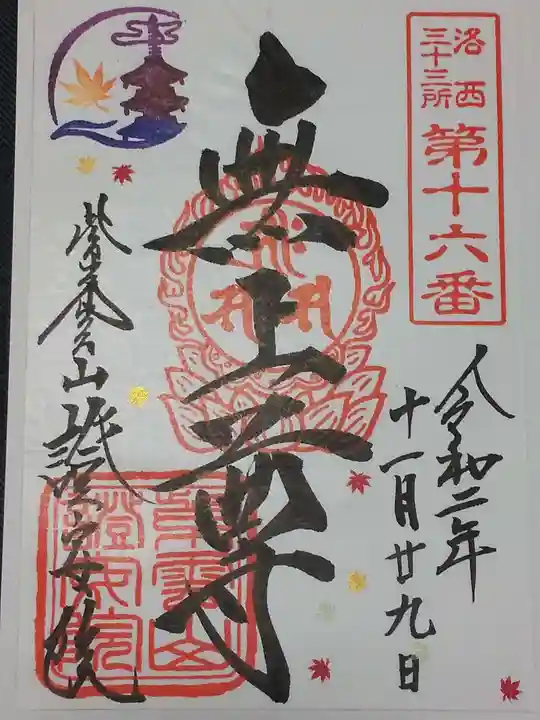 洛西
三十三所
第十六番
令和二年
十一月廿九日
無上尊
山 證安院
證安院